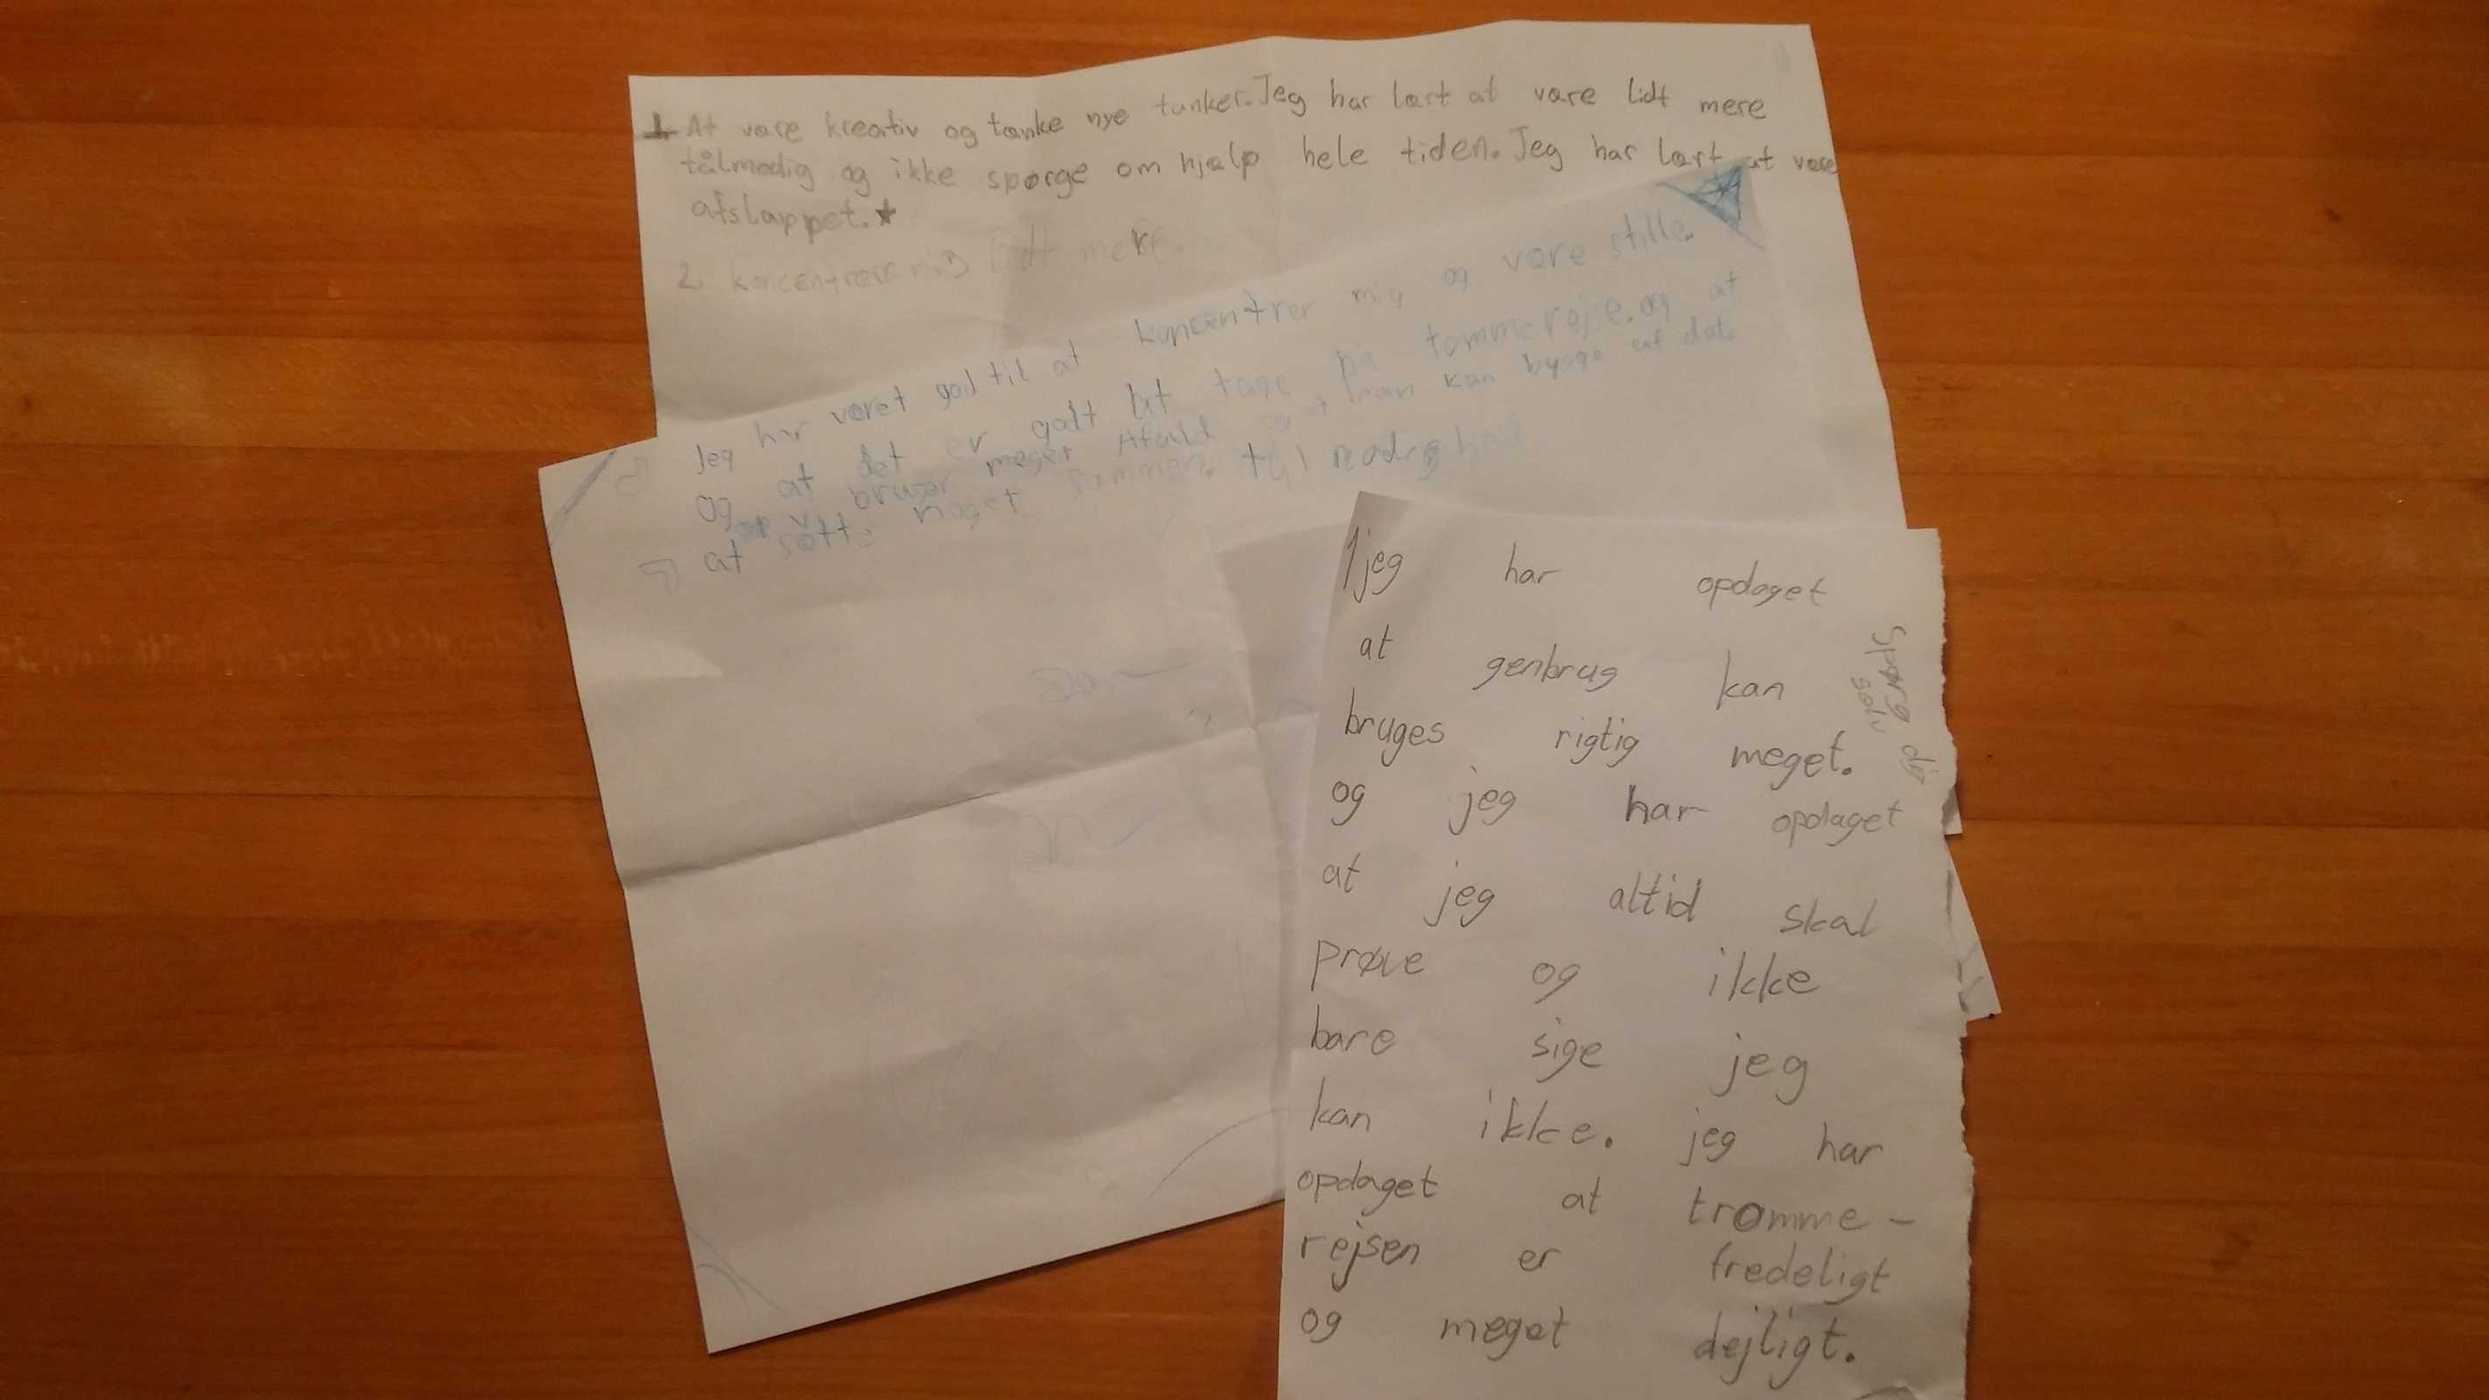 1 At være kreativ og tænke nye tanker. Jeg har lært at være lidt mere
tålmodig og ikke spørge om hjælp hele tiden. Jeg har lært at være
afslappet.
2 koncentrere mig lidt mere.
Jeg har været god til at koncentrer mig og være stille.
og at det er godt at tage på tommerejse. og at
vi bruger meget Afald og at man kan bygge af det.
at sætte noget sammen. til
1 jeg har opdaget
at genbrug kan
bruges rigtig meget.
og jeg har opdaget
at jeg altid skal
prøve og ikke
bare sige jeg
kan ikke. jeg har
opdaget at tromme-
rejsen er fredeligt
og meget dejligt.
Spørg dig
selv